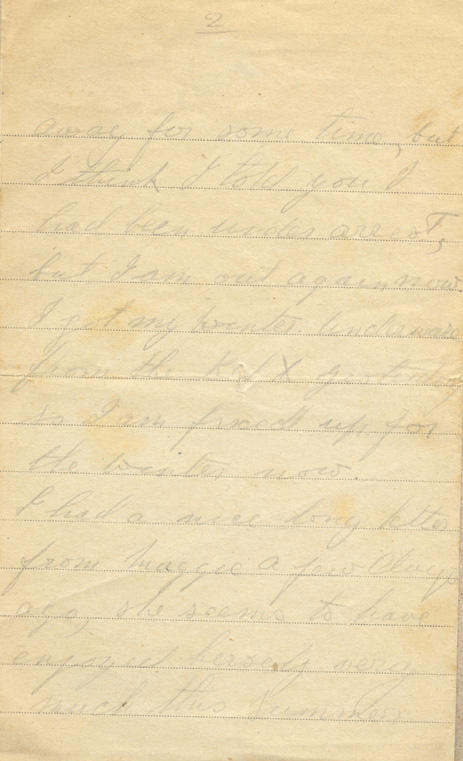 2
away for some time, but
I think I told you I
had been under arrest,
but I am out again now.
I got my winter underware
from the yesterday
so I am fixed up for
the winter now.
I had a nice long letter
from Maggie a few days
ago, she seems to have
enjoyed herself very
much this summer